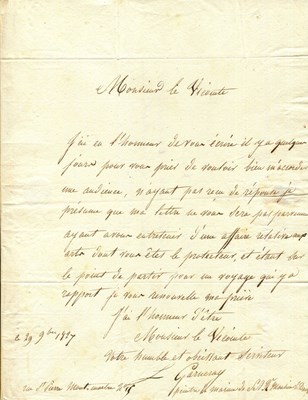 Monsieur le Vicomte
J'ai eu l'honneur de vous écrire il y a quelques
jours pour vous prier de vouloir bien m'accorder
une audience, n'ayant pas reçu de réponse je
présume que ma lettre ne vous sera pas parvenue
ayant à vous entretenir d'une affaire relative aux
arts dont vous êtes le protecteur, et étant sur
le point de partir pour un voyage qui y a
rapport je vous renouvelle ma prière
J'ai l'honneur d'être
Monsieur le Vicomte
le 29 9bre 1827
Votre humble et obéissant Serviteur
Garneray
rue St Pierre Montmartre No 15
peintre de marine de S.A.R.